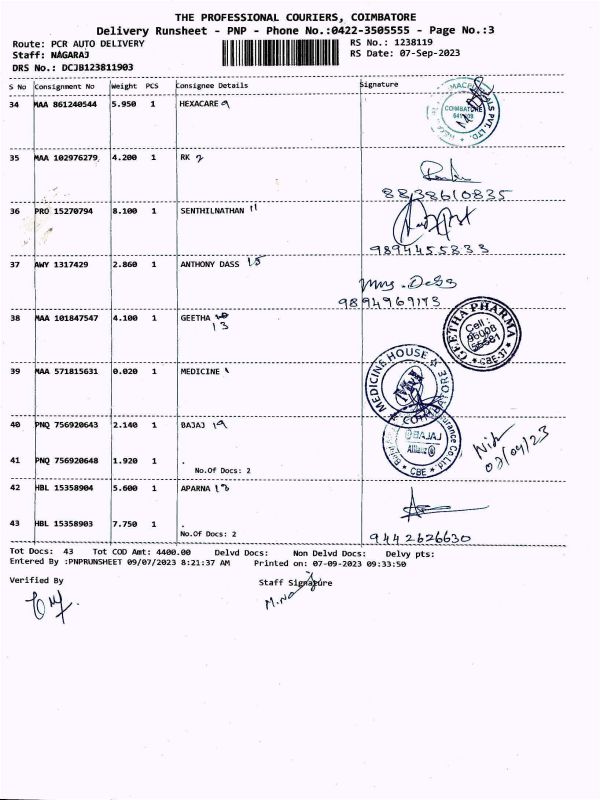 THE PROFESSIONAL COURIERS, COIMBATORE
Delivery Runsheet - PNP - Phone No.:0422-3505555 - Page No.:3
Route: PCR AUTO DELIVERY RS No.: 1238119
Staff: NAGARAJ RS Date: 07-Sep-2023
DRS No.: DCJB123811903
S No Consignment No Weight PCS Consignee Details Signature
34 MAA 861240544 5.950 1 HEXACARE 9
COIMBATORE
35 MAA 102976279 4.200 1 RK 2
8838610835
36 PRO 15270794 8.100 1 SENTHILNATHAN 11
9894455333
37 AWY 1317429 2.860 1 ANTHONY DASS 15
Mrs. Dass
9894969193
38 MAA 101847547 4.100 1 GEETHA
13
GEETHA PHARMA
Cell :
CBE-37
39 MAA 571815631 0.020 1 MEDICINE
MEDICINE HOUSE
COIMBATORE
40 PNQ 756920643 2.140 1 BAJAJ 19
BAJAJ
Allianz
CBE
41 PNQ 756920648 1.920 1 .
No.Of Docs: 2
42 HBL 15358904 5.600 1 APARNA
43 HBL 15358903 7.750 1 .
No.Of Docs: 2
9442626630
Tot Docs: 43 Tot COD Amt: 4400.00 Delvd Docs: Non Delvd Docs: Delvy pts:
Entered By :PNPRUNSHEET 09/07/2023 8:21:37 AM Printed on: 07-09-2023 09:33:50
Verified By Staff Signature